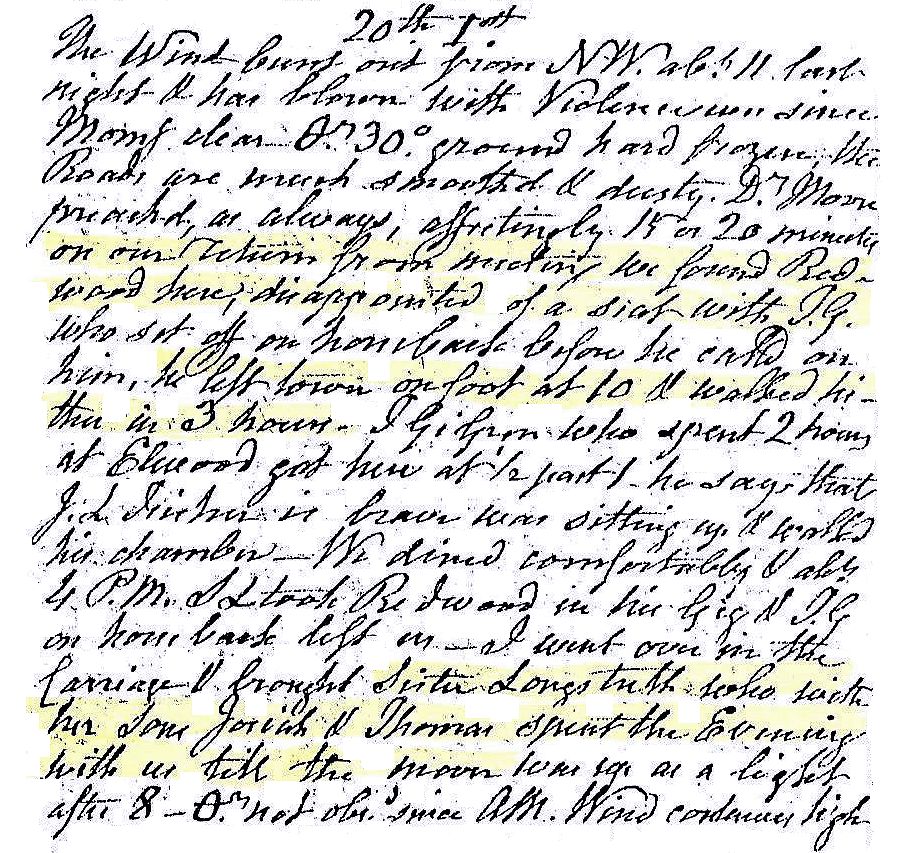 20th 1st
The Wind burst out from NW. abt. 11 last
night & has blown with Violence ever since
Morng clear 30° ground hard frozen, the
Roads are much smooth'd & dusty. Dr. Moore
preach'd, as always, affectingly 15 or 20 minutes
on our return from meeting we found Red-
wood here, disappointed of a seat with T.G.
who set off on horseback before he call'd on
him, he left town on foot at 10 & walked hi-
ther in 3 hours. T Gilpin who spent 2 hours
at Elwood got here at ½ past 1 - he says that
Fisher is brave was sitting up & walk'd
his chamber — We dined comfortably & abt.
4 P.M. S L took Redwood in his Gig & T.G
on horseback left us — I went over in the
Carriage & brought Sister Longstreth who with
her Sons Josiah & Thomas spent the Evening
with us till the moon was up as a light
after 8 — not obs.d since AM. Wind continues high